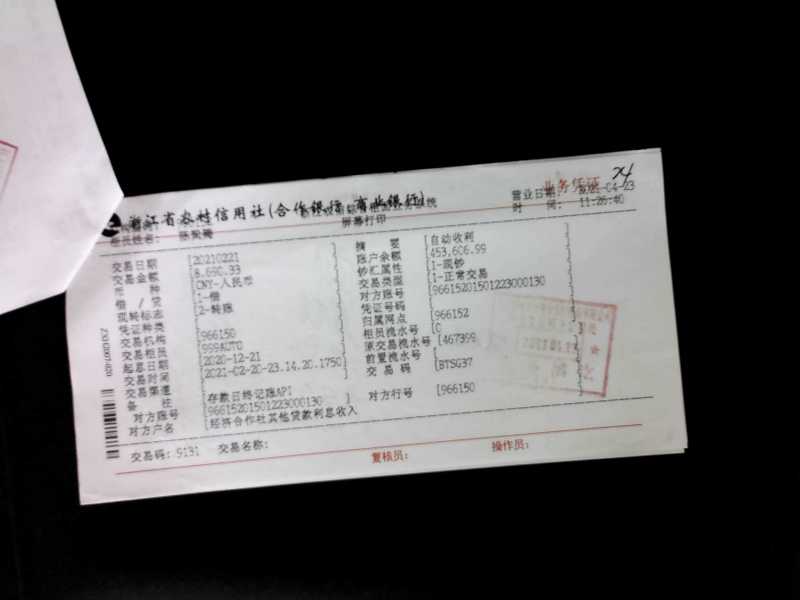 浙江省农村信用社(合作银行、商业银行)
业务凭证
屏幕打印
营业日期: 2021-04-23
柜员姓名:
时 间: 11:26:40
交易日期 [20210221 摘 要 [自动收利
交易金额 [8,690.33 账户余额 [453,606.99
币 种 [CNY-人民币 钞汇属性 [1-现钞
借 / 贷 [1-借 交易类型 [1-正常交易
现转标志 [2-转账 对方账号 [96615201501223000130]
凭证种类 凭证号码 [
交易机构 [966150 归属网点 [966152
交易柜员 [999AUTO 柜员流水号 [0
起息日期 [2020-12-21 原交易流水号 [467399
交易时间 [2021-02-20-23.14.20.1750] 前置流水号 [
交易渠道 [ 交 易 码 [BTSG37
备 注 [存款日终记账API
对方账号 [96615201501223000130] 对方行号 [966150
对方户名 [经济合作社其他贷款利息收入
交易码: 9131 交易名称:
复核员: 操作员: